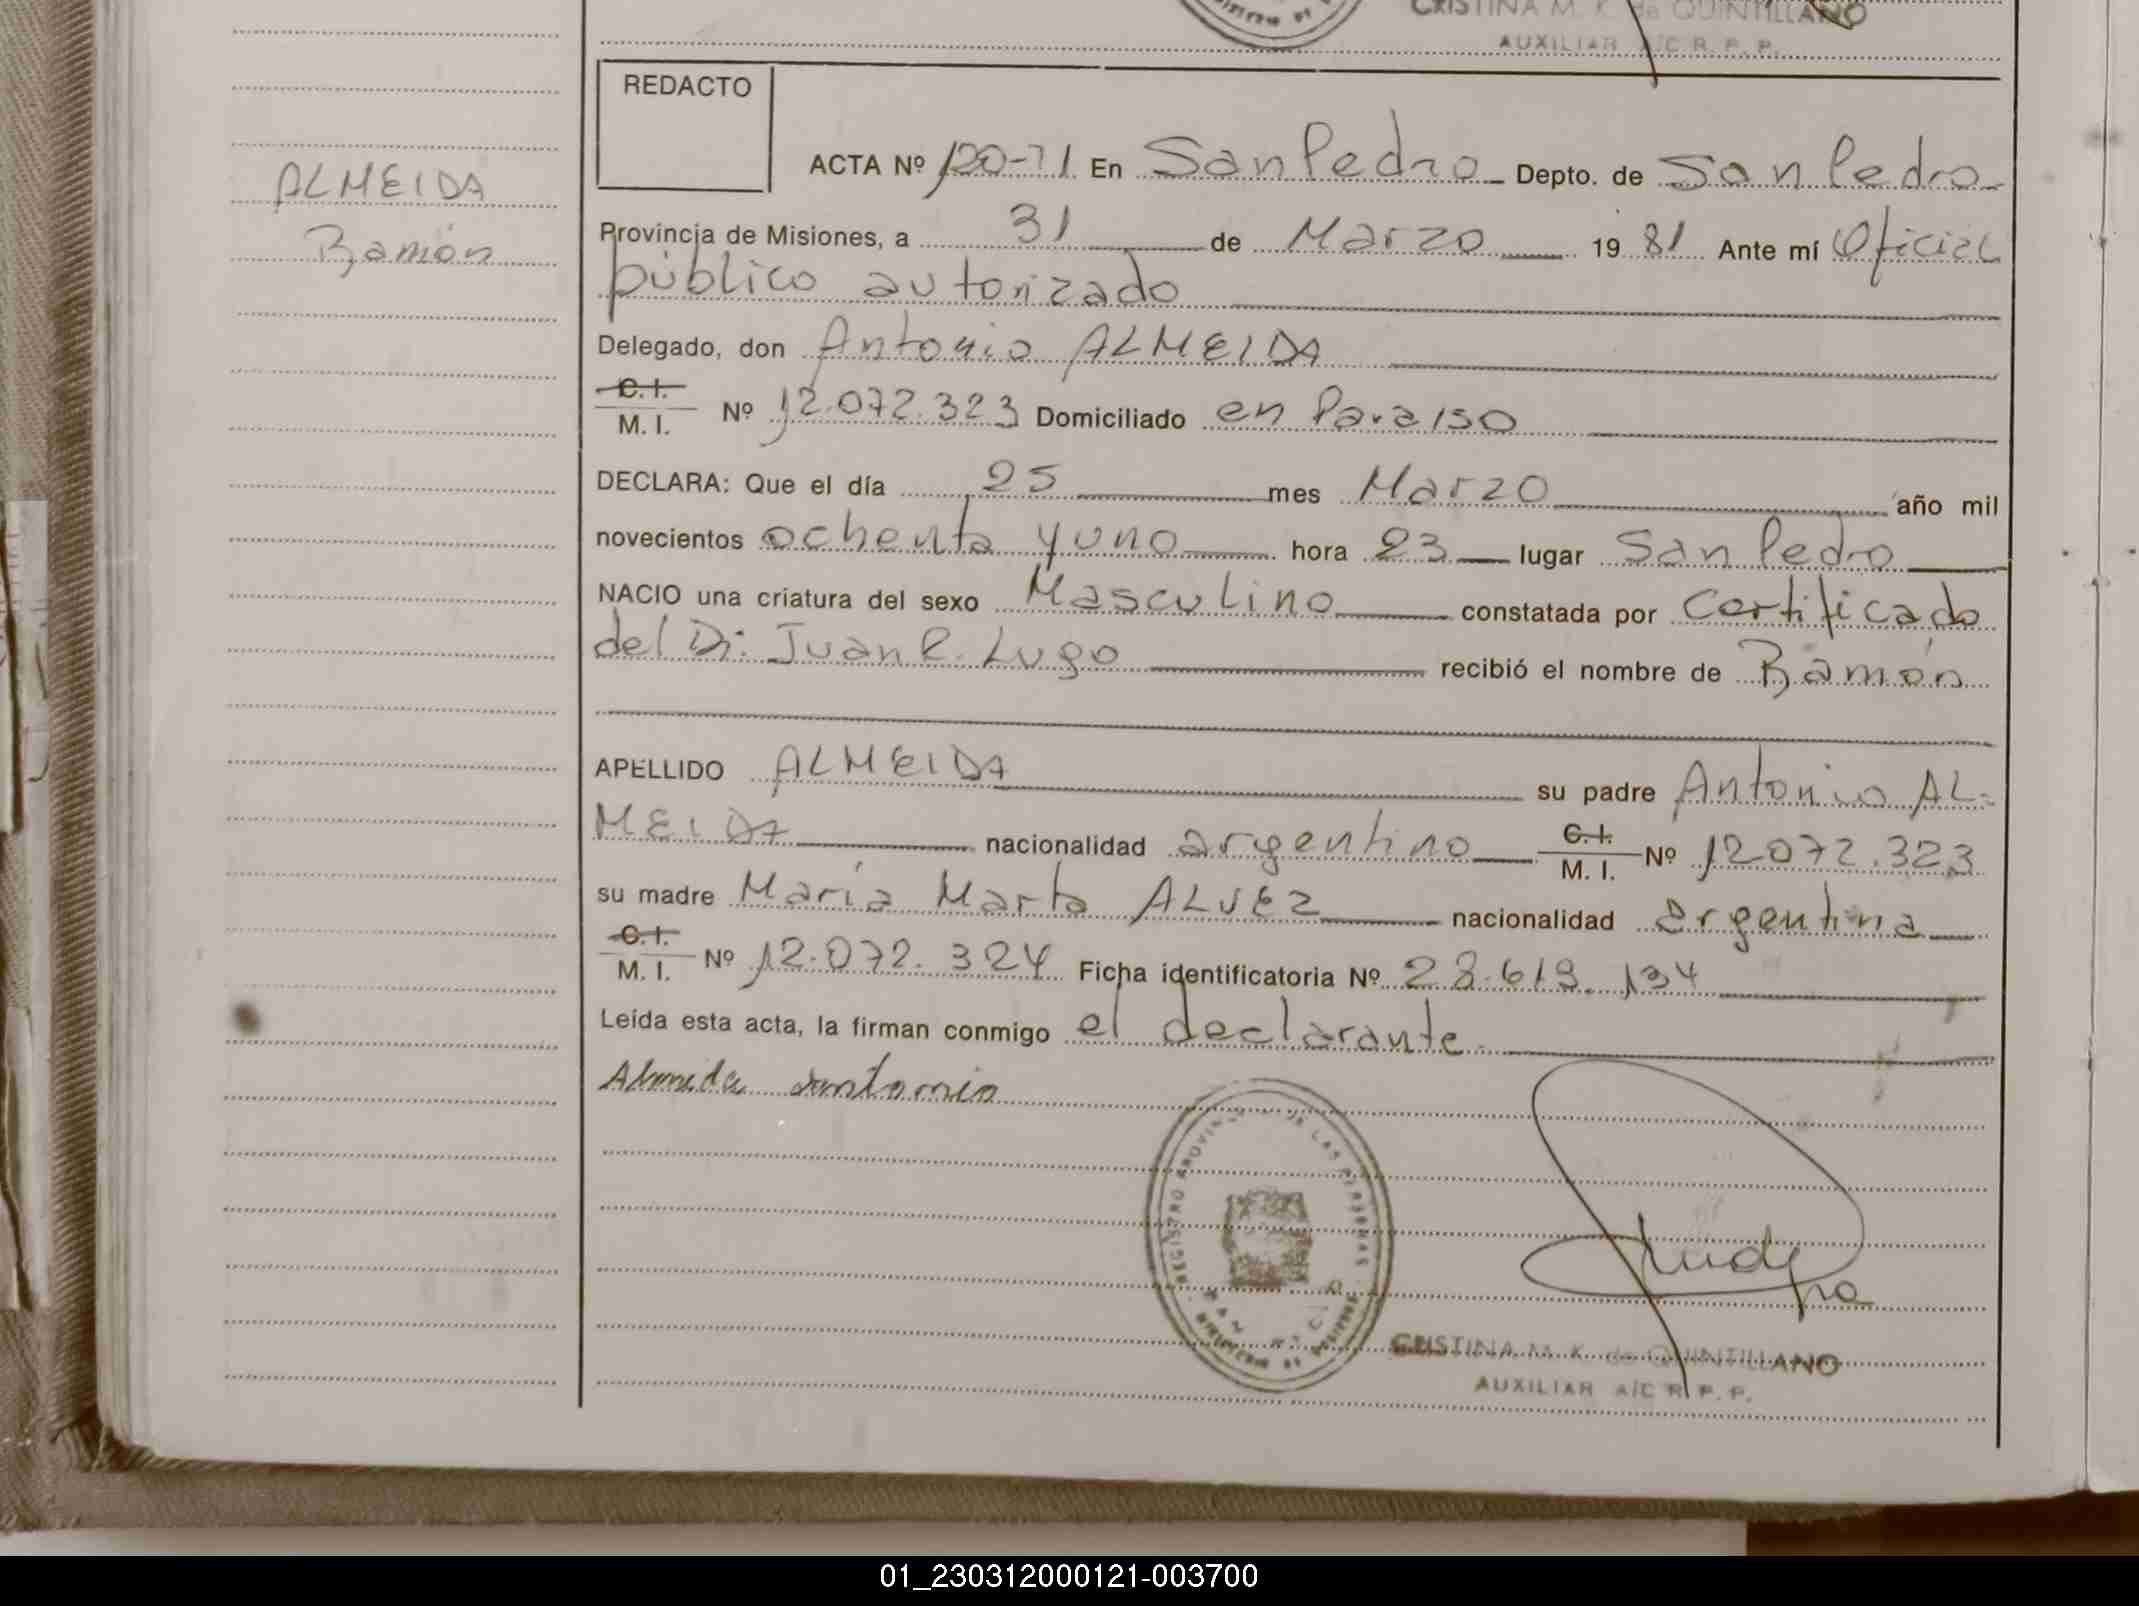 CRISTINA M. K. de QUINTILLANO
AUXILIAR A/C R. P. P.
REDACTO
ALMEIDA
Ramón
ACTA Nº 120-T1 En San Pedro Depto. de San Pedro
Provincia de Misiones, a 31 de Marzo 19 81 Ante mí Oficial
público autorizado
Delegado, don Antonio ALMEIDA
C. I.
M. I. Nº 12.072.323 Domiciliado en Paraiso
DECLARA: Que el día 25 mes Marzo año mil
novecientos ochenta y uno hora 23 lugar San Pedro
NACIO una criatura del sexo Masculino constatada por Certificado
del Dr. Juan R. Lugo recibió el nombre de Ramón
APELLIDO ALMEIDA su padre Antonio AL-
MEIDA nacionalidad argentino C. I. M. I. Nº 12.072.323
su madre María Marta ALVEZ nacionalidad argentina
C. I.
M. I. Nº 12.072.324 Ficha identificatoria Nº 28.619.134
Leída esta acta, la firman conmigo el declarante
Almeida Antonio
REGISTRO PROVINCIAL DE LAS PERSONAS
MINISTERIO DE GOBIERNO
CRISTINA M. K. de QUINTILLANO
AUXILIAR A/C R. P. P.
01_230312000121-003700